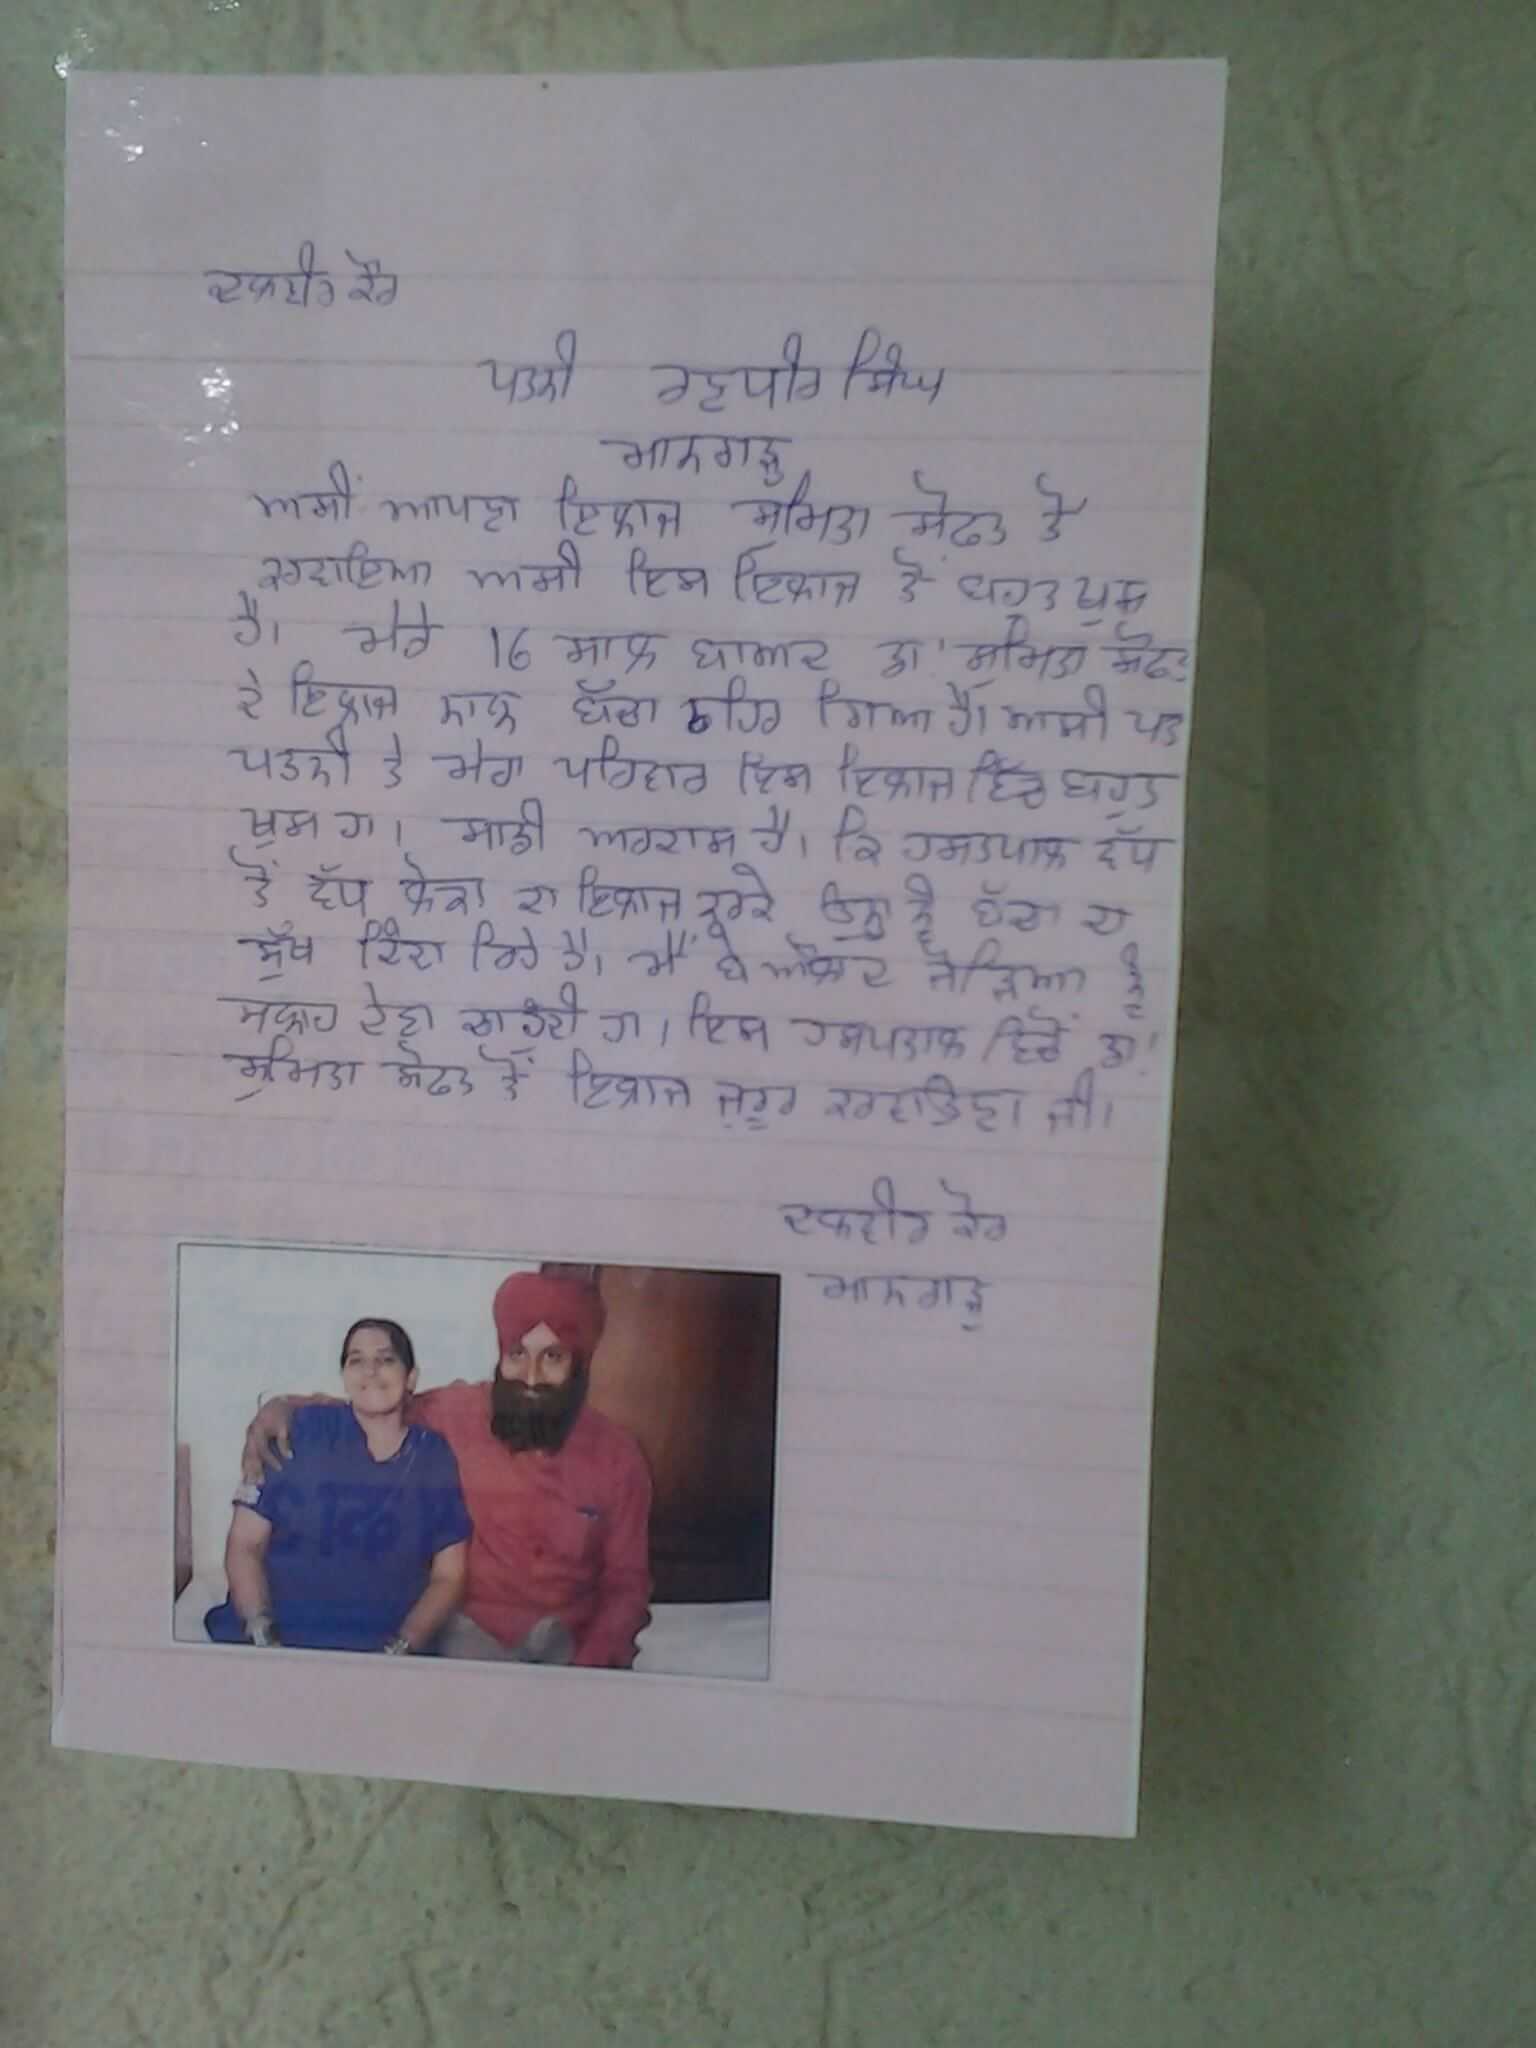 ਦਲਵੀਰ ਕੌਰ
ਪਤਨੀ ਰਣਧੀਰ ਸਿੰਘ
ਮਾਨਗੜ੍ਹ
ਅਸੀਂ ਆਪਣਾ ਇਲਾਜ ਸੁਮਿਤਾ ਸੋਫਤ ਤੋਂ
ਕਰਵਾਇਆ ਅਸੀ ਇਸ ਇਲਾਜ ਤੋਂ ਬਹੁਤ ਖੁਸ਼
ਹੈ। ਮੇਰੇ 16 ਸਾਲ ਬਾਅਦ ਡਾ. ਸੁਮਿਤਾ ਸੋਫਤ
ਦੇ ਇਲਾਜ ਨਾਲ ਬੱਚਾ ਠਹਿਰ ਗਿਆ ਹੈ। ਅਸੀ ਪਤ
ਪਤਨੀ ਤੇ ਮੇਰਾ ਪਰਿਵਾਰ ਇਸ ਇਲਾਜ ਵਿੱਚ ਬਹੁਤ
ਖੁਸ਼ ਹਾ। ਸਾਡੀ ਅਰਦਾਸ ਹੈ। ਕਿ ਹਸਤਪਾਲ ਵੱਧ
ਤੋਂ ਵੱਧ ਲੋਕਾ ਦਾ ਇਲਾਜ ਕਰਕੇ ਉਨ੍ਹਾ ਨੂੰ ਬੱਚਾ ਦਾ
ਸੁੱਖ ਦਿੰਦਾ ਰਿਹੇ ਹੈ। ਮੈਂ ਬੇ ਔਲਾਦ ਜੋੜਿਆ ਨੂੰ
ਸਲਾਹ ਦੇਣਾ ਚਾਹੁੰਦੀ ਹਾ। ਇਸ ਹਸਪਤਾਲ ਵਿੱਚੋਂ ਡਾ.
ਸੁਮਿਤਾ ਸੋਫਤ ਤੋਂ ਇਲਾਜ ਜ਼ਰੂਰ ਕਰਵਾਉਣਾ ਜੀ।
ਦਲਵੀਰ ਕੌਰ
ਮਾਨਗੜ੍ਹ